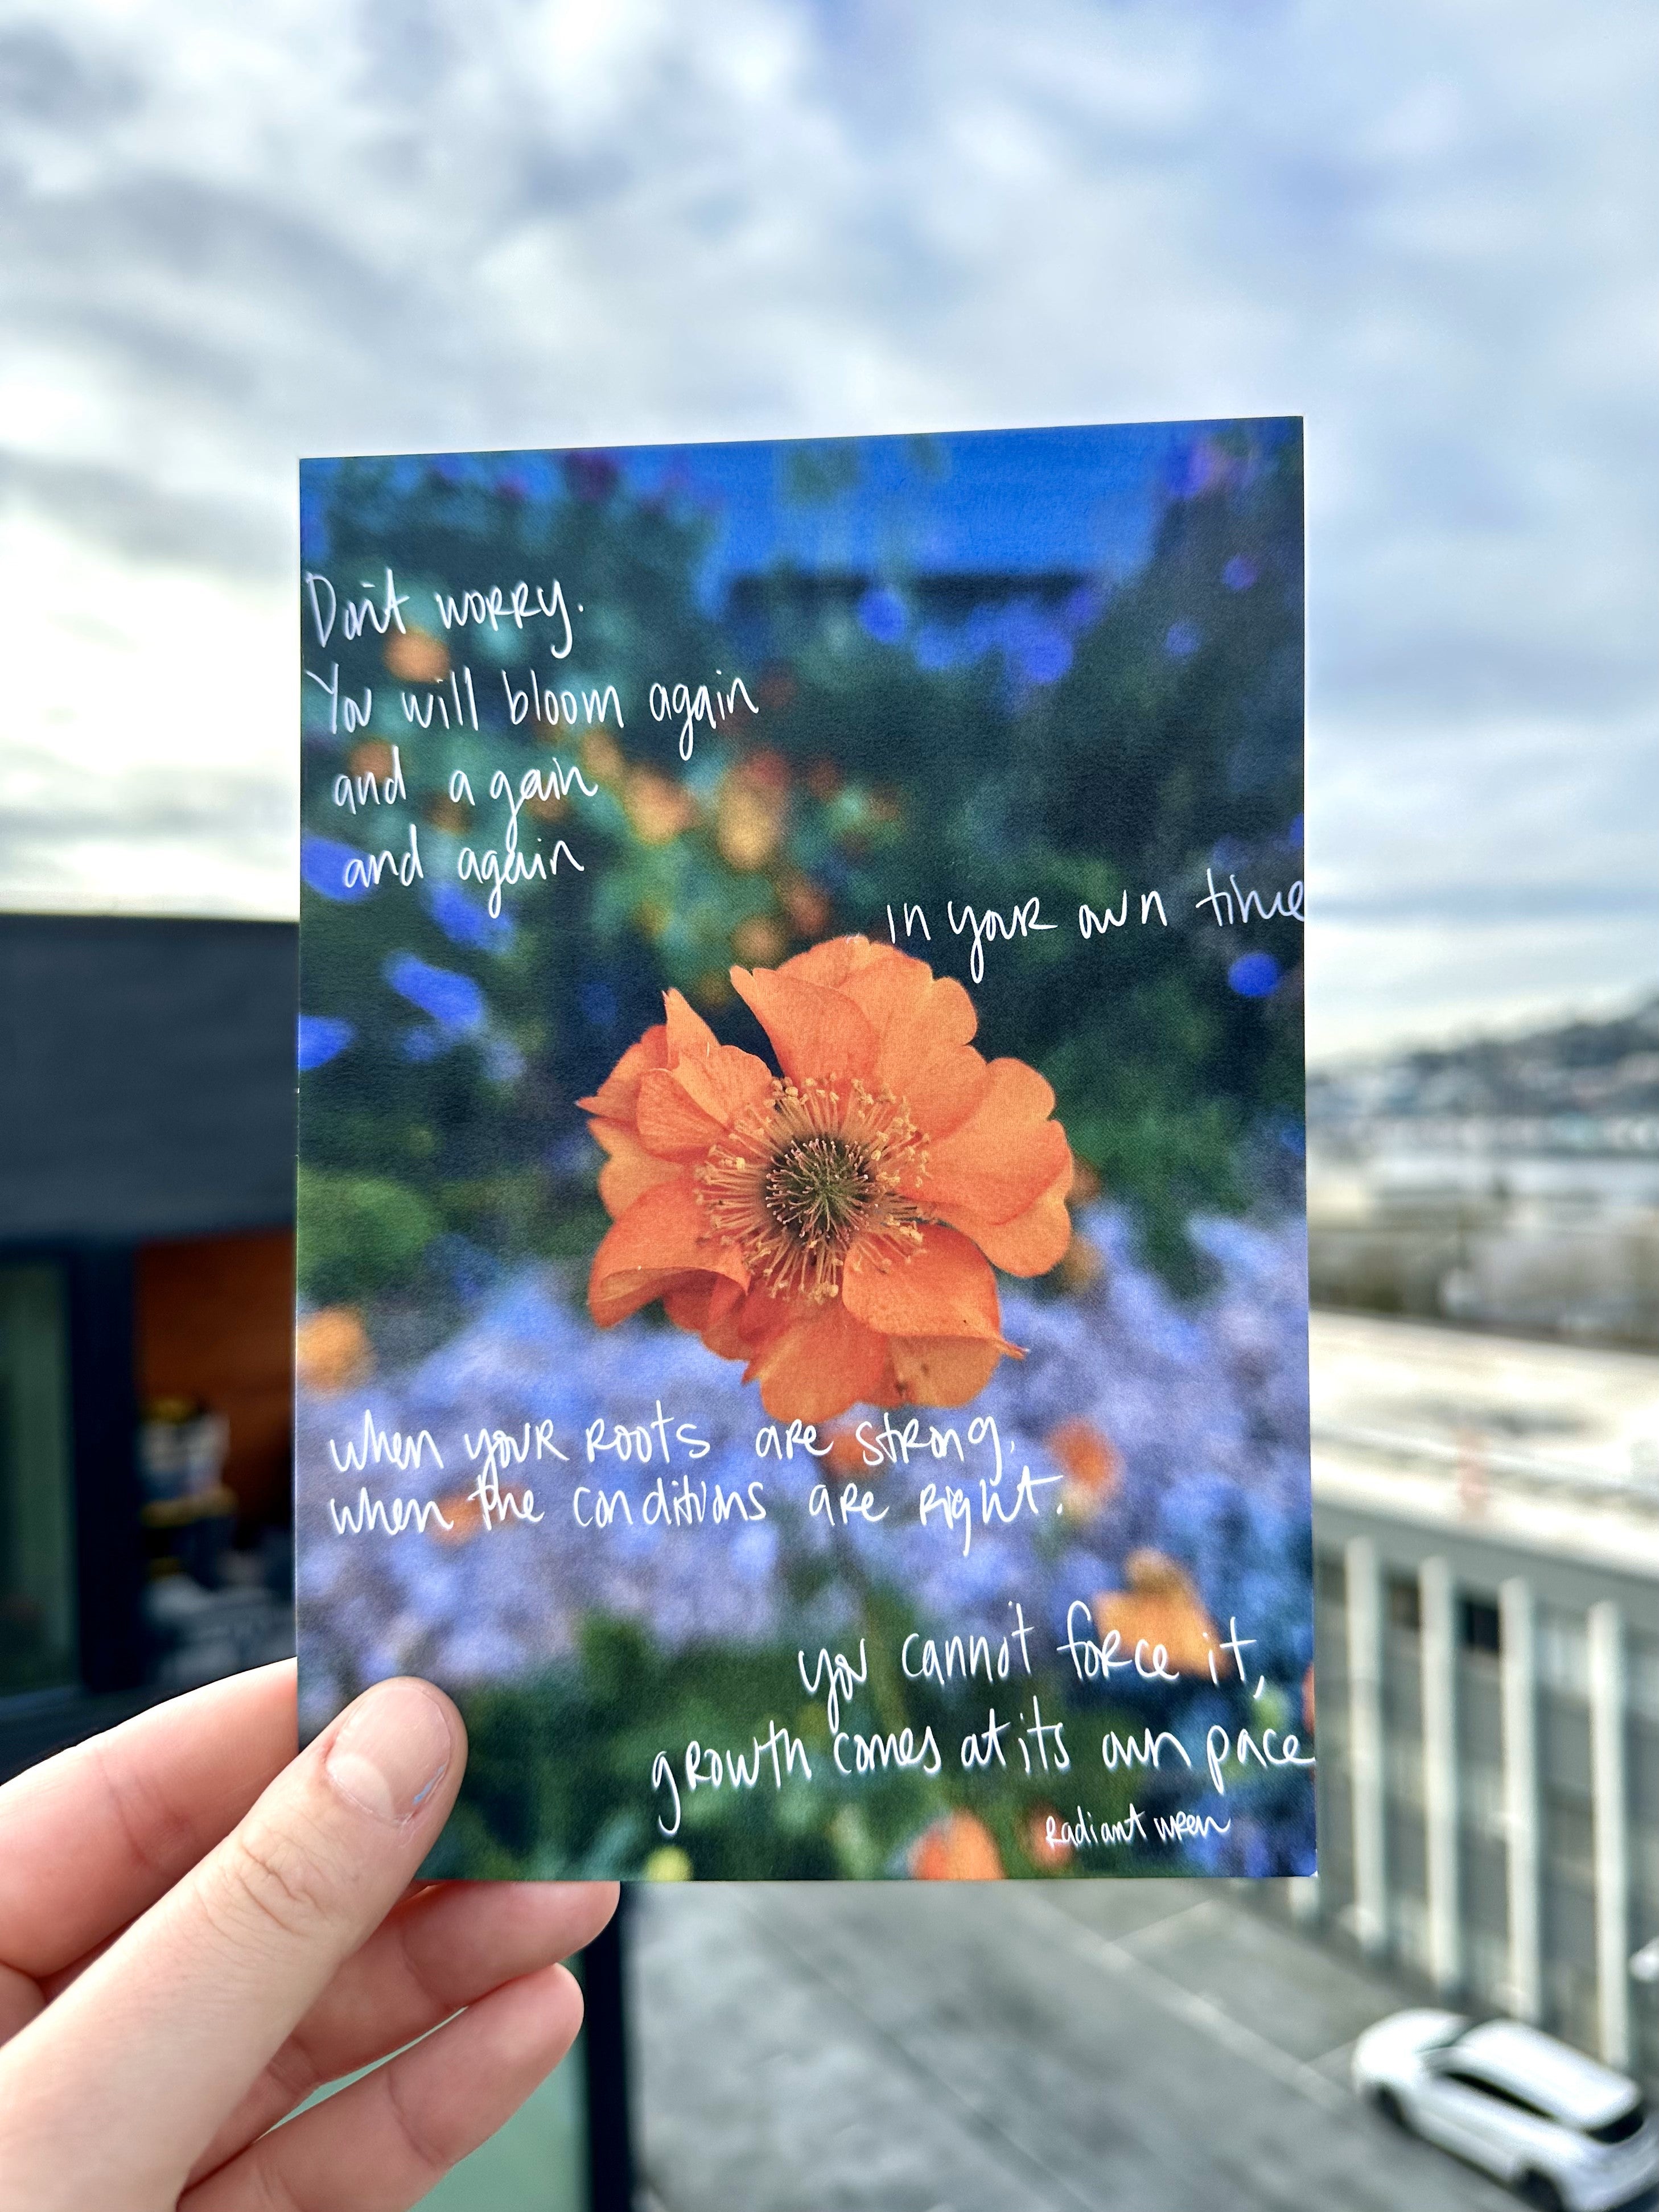 Don't worry.
You will bloom again
and again
and again
in your own time
when your roots are strong,
when the conditions are right.
you cannot force it,
growth comes at its own pace
Radiant wren